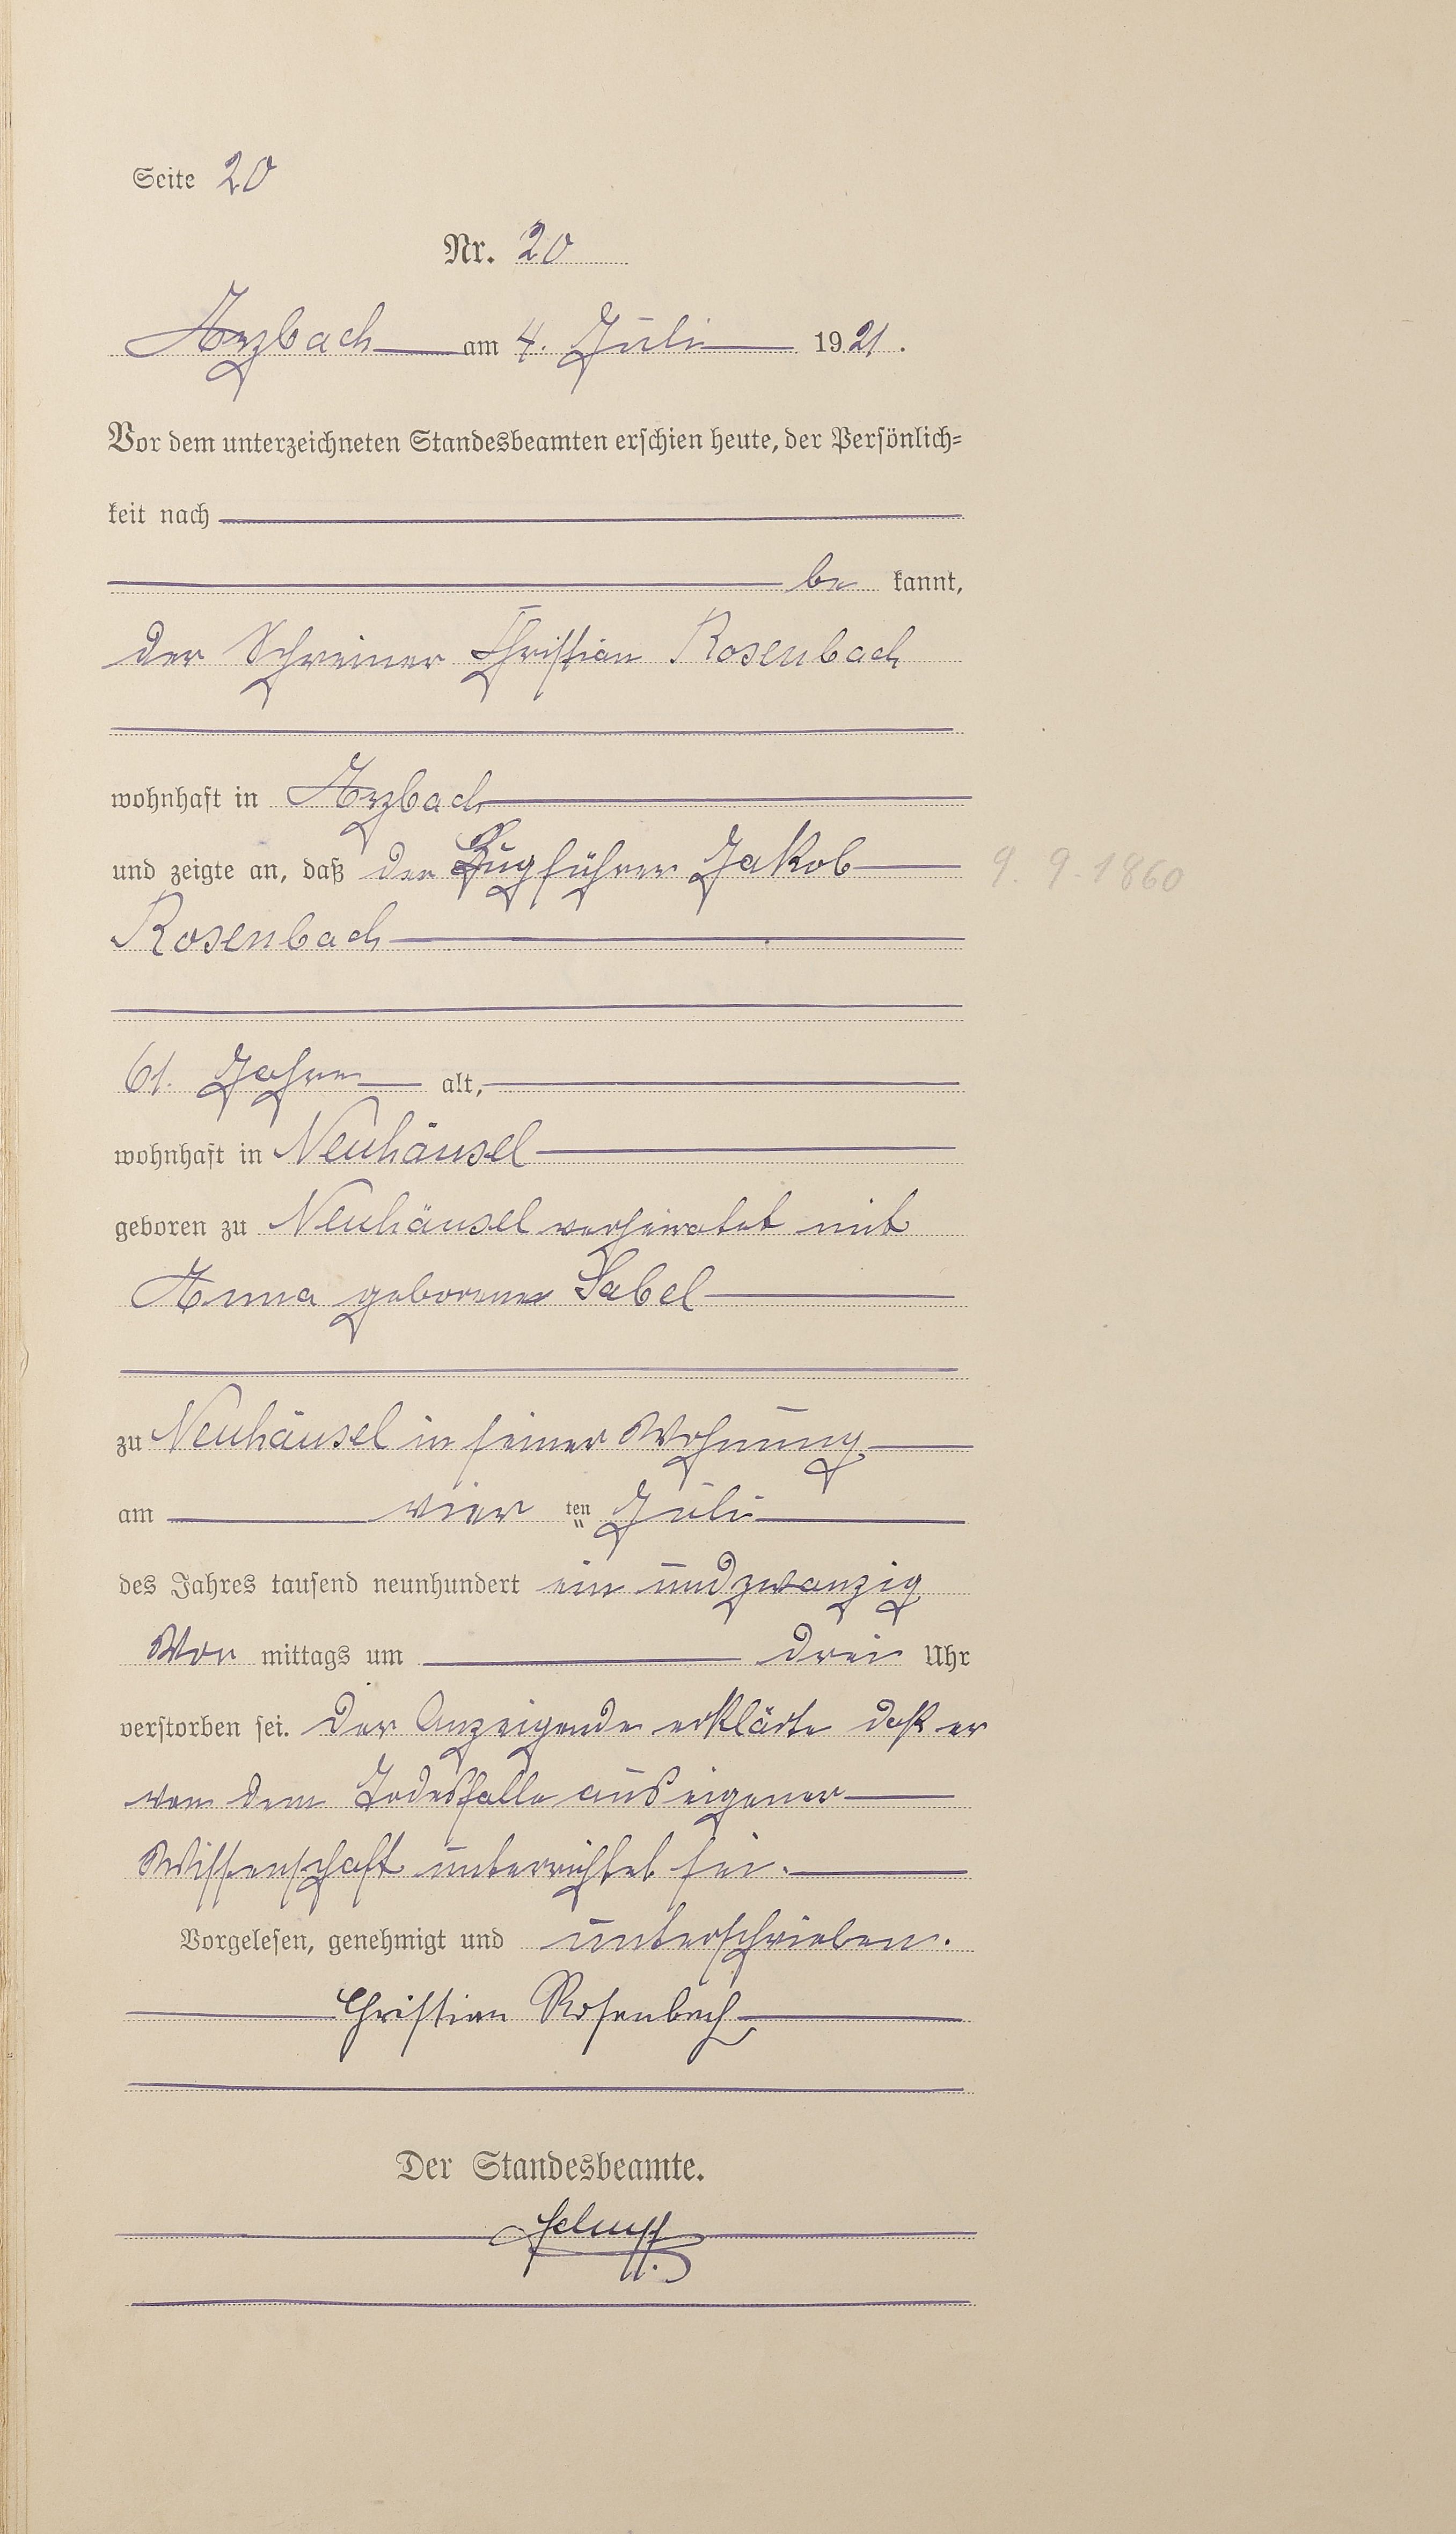 Seite 20
Nr. 20
Arzbach am 4. Juli 1921.
Vor dem unterzeichneten Standesbeamten erschien heute, der Persönlich-
keit nach
be kannt,
der Schreiner Christian Rosenbach
wohnhaft in Arzbach
und zeigte an, daß der Zugführer Jakob 9. 9. 1860
Rosenbach
61. Jahre alt,
wohnhaft in Neuhäusel
geboren zu Neuhäusel verheiratet mit
Anna geborene Sabel
zu Neuhäusel in seiner Wohnung
am vier ten Juli
des Jahres tausend neunhundert ein und zwanzig
Vor mittags um drei Uhr
verstorben sei. Der Anzeigende erklärte daß er
von dem Todesfalle aus eigener
Wissenschaft unterrichtet sei.
Vorgelesen, genehmigt und unterschrieben.
Christian Rosenbach
Der Standesbeamte.